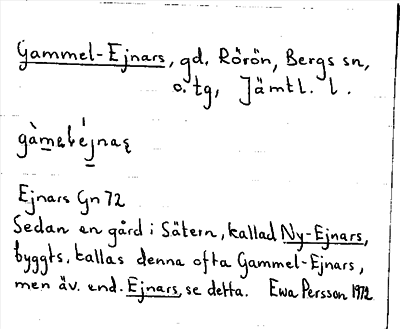 Gammel-Ejnars, gd, Rörön, Bergs sn,
o. tg, Jämtl. l.
Ejnars Gn 72
Sedan en gård i Sätern, kallad Ny-Ejnars,
byggts, kallas denna ofta Gammel-Ejnars,
men äv. end. Ejnars, se detta. Ewa Persson 1972